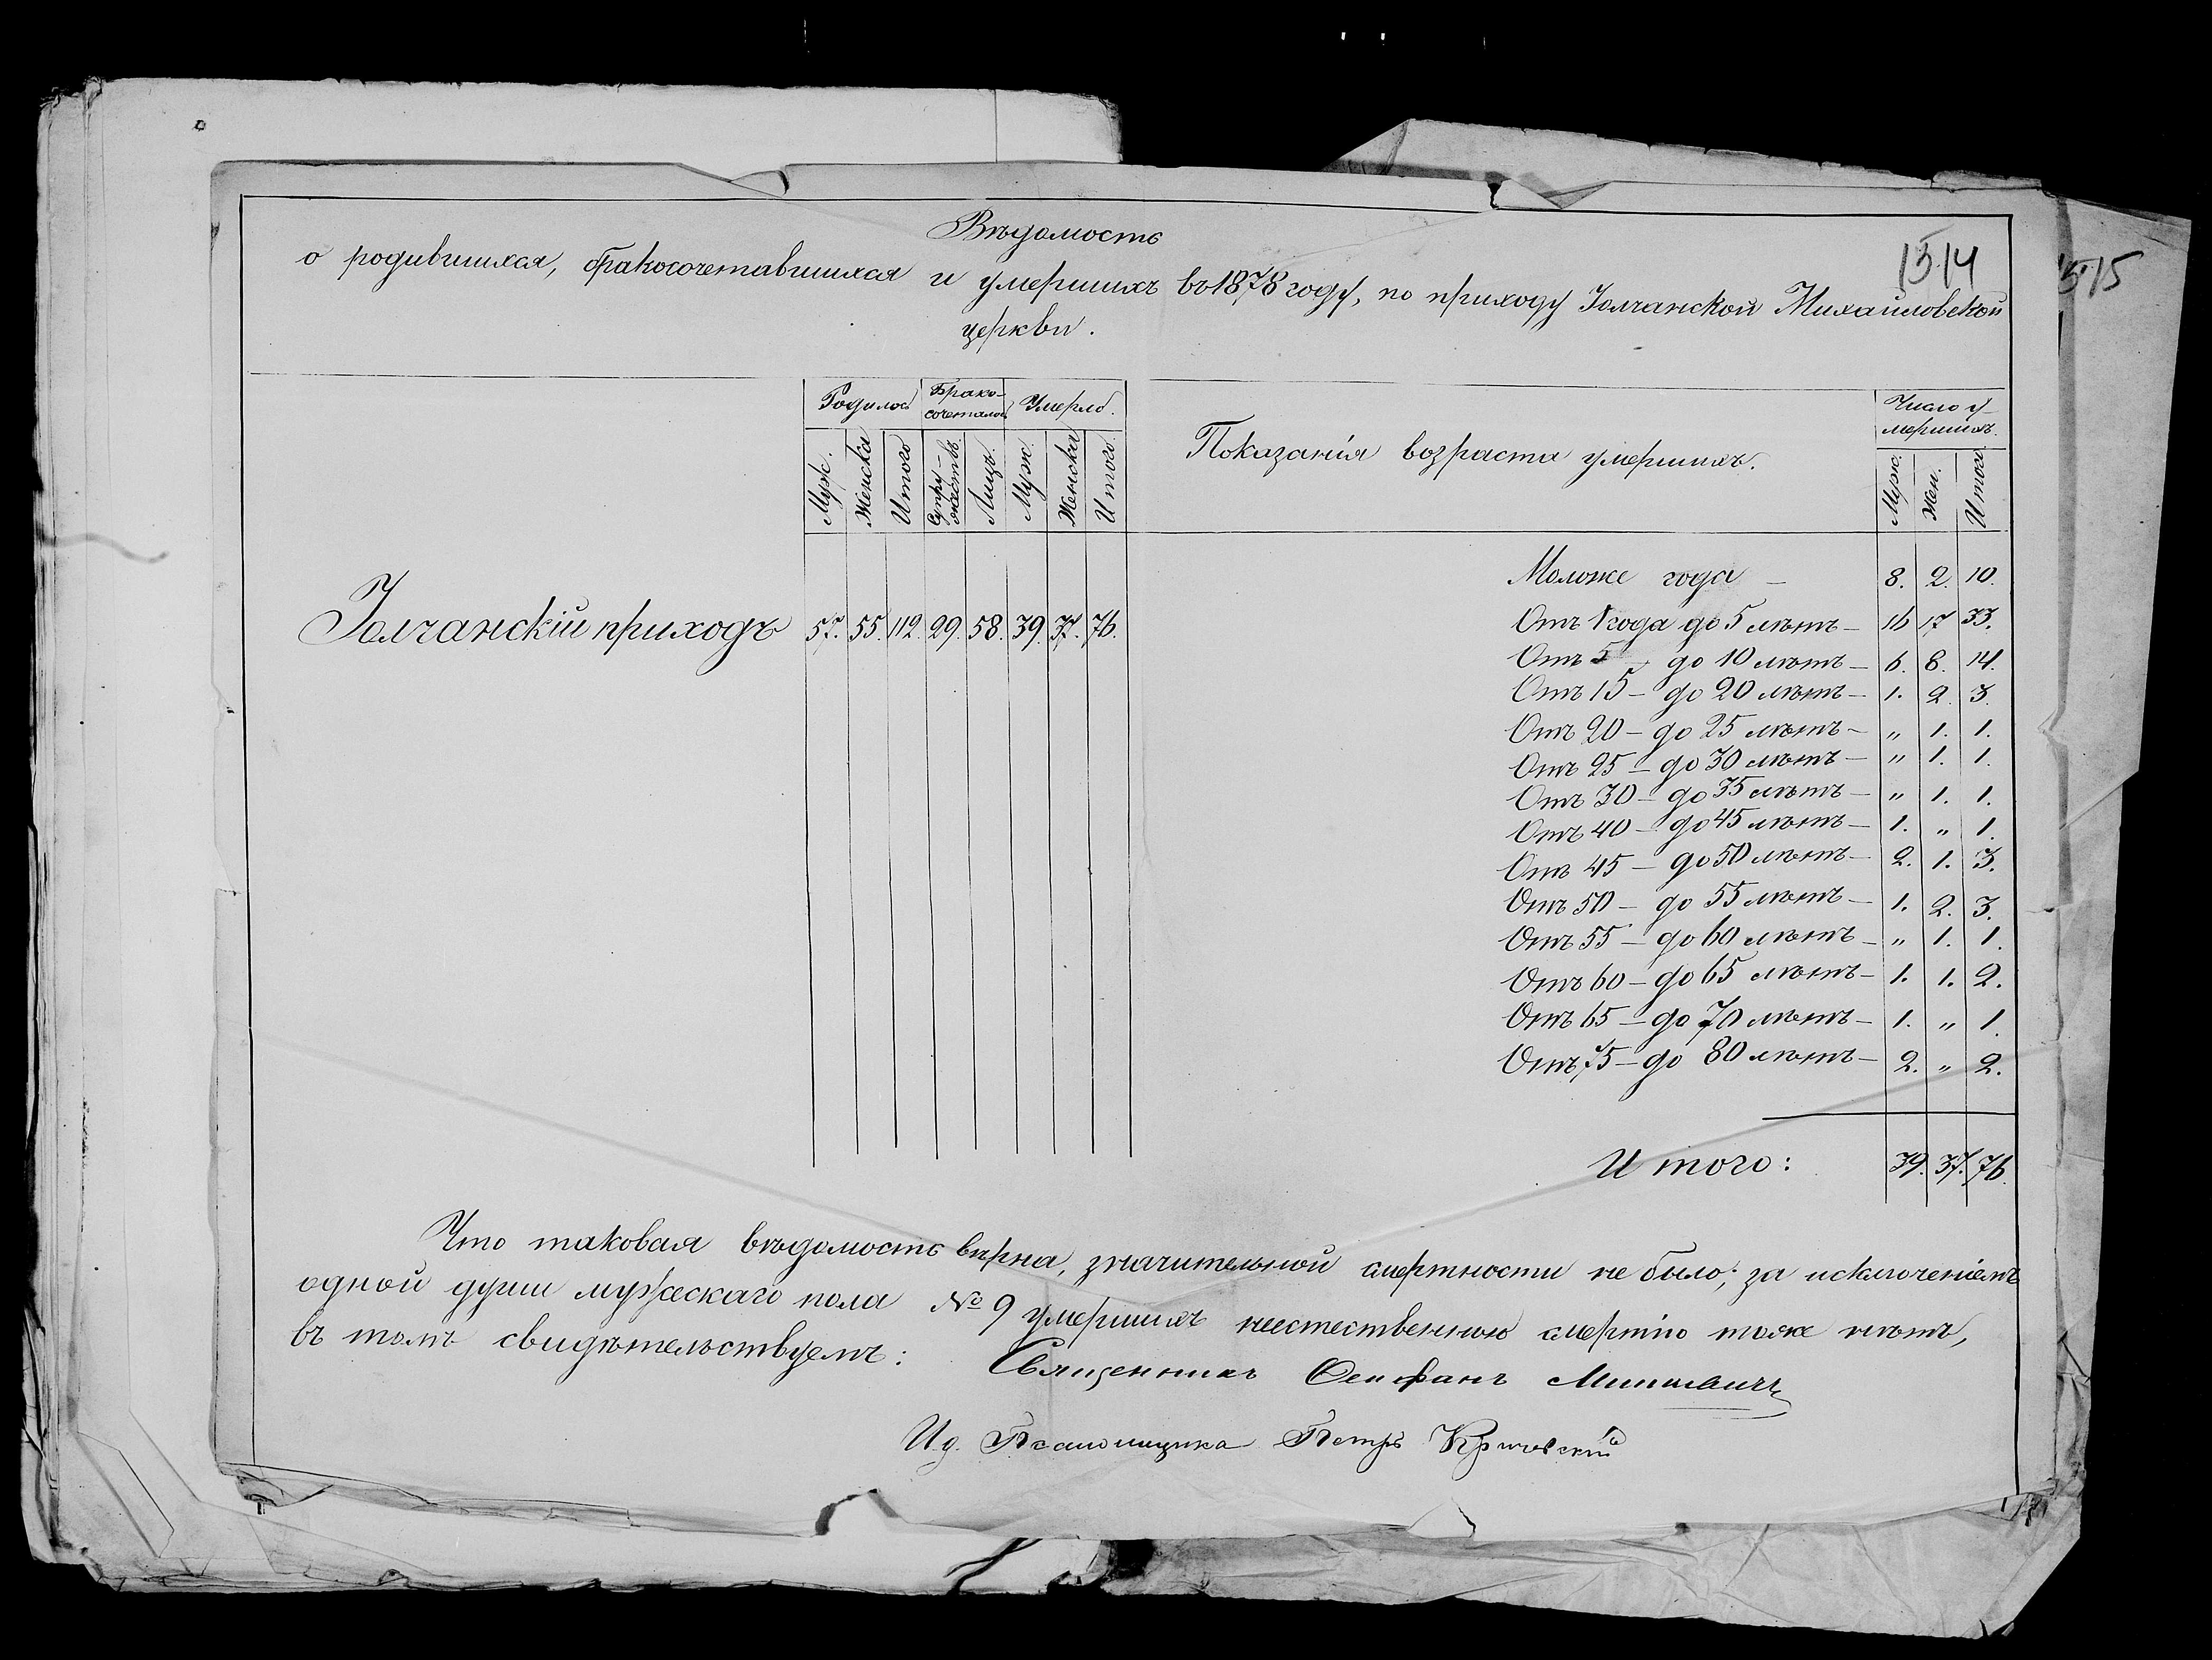 Вѣдомость
о родившихся, бракосочетавшихся и умершихъ въ 1878 году, по приходу Іолчанской Михайловской
церкви.
1514
515
Родилось
Брако-
сочеталось
Умерло.
Муж.
Женска
Итого
Супру-
жествъ.
Лицъ.
Муж.
Женска
Итого.
Показанія возраста умершихъ.
Число у-
мершихъ.
Муж.
Жен.
Итого
Іолчанскій приходъ 57. 55. 112. 29. 58. 39. 37. 76.
Моложе года — 8. 2. 10.
Отъ 1 года до 5 лѣтъ — 16 17 33.
Отъ 5 — до 10 лѣтъ — 6. 8. 14.
Отъ 15 — до 20 лѣтъ — 1. 2. 3.
Отъ 20 — до 25 лѣтъ — „ 1. 1.
Отъ 25 — до 30 лѣтъ — „ 1. 1.
Отъ 30 — до 35 лѣтъ — „ 1. 1.
Отъ 40 — до 45 лѣтъ — 1. „ 1.
Отъ 45 — до 50 лѣтъ — 2. 1. 3.
Отъ 50 — до 55 лѣтъ — 1. 2. 3.
Отъ 55 — до 60 лѣтъ — „ 1. 1.
Отъ 60 — до 65 лѣтъ — 1. 1. 2.
Отъ 65 — до 70 лѣтъ — 1. „ 1.
Отъ 75 — до 80 лѣтъ — 2. „ 2.
Итого: 39. 37. 76.
Что таковая вѣдомость вѣрна, значительной смертности не было; за исключеніемъ
одной души мужескаго пола № 9 умершихъ неестественною смертію тоже нѣтъ,
въ томъ свидѣтельствуемъ:
Священникъ
И. д. Псаломщика Петръ